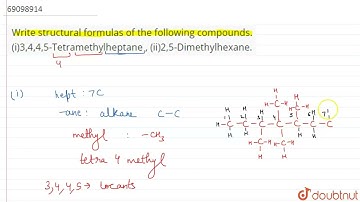 69098914
Write structural formulas of the following compounds.
(i)3,4,4,5-Tetramethylheptane , (ii)2,5-Dimethylhexane.
4
(i) hept : 7C
-ane : alkane C-C
methyl : -CH3
tetra 4 methyl
3,4,4,5 → locants
H-C-H H-C-H
H H H H H H
1 2 3 4 5 6 7
H-C-C-C-C-C-C-C
H H
H-C-H H-C-H
H H
doubtnut